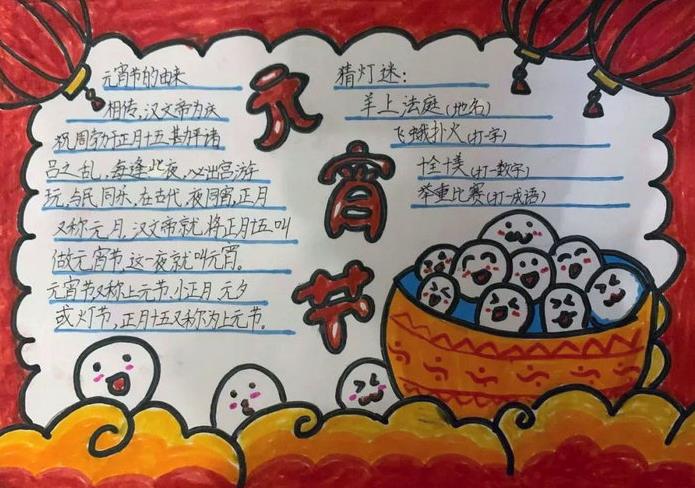 元宵节的由来
相传，汉文帝为庆
祝周勃于正月十五勘平诸
吕之乱，每逢此夜，必出宫游
玩，与民同乐，在古代，夜同宵，正月
又称元月，汉文帝就将正月十五叫
做元宵节，这一夜就叫元宵。
元宵节又称上元节、小正月、元夕
或灯节，正月十五又称为上元节。
元宵节
猜灯迷：
羊上法庭（地名）
飞蛾扑火（打一字）
（打一数字）
举重比赛（打一成语）